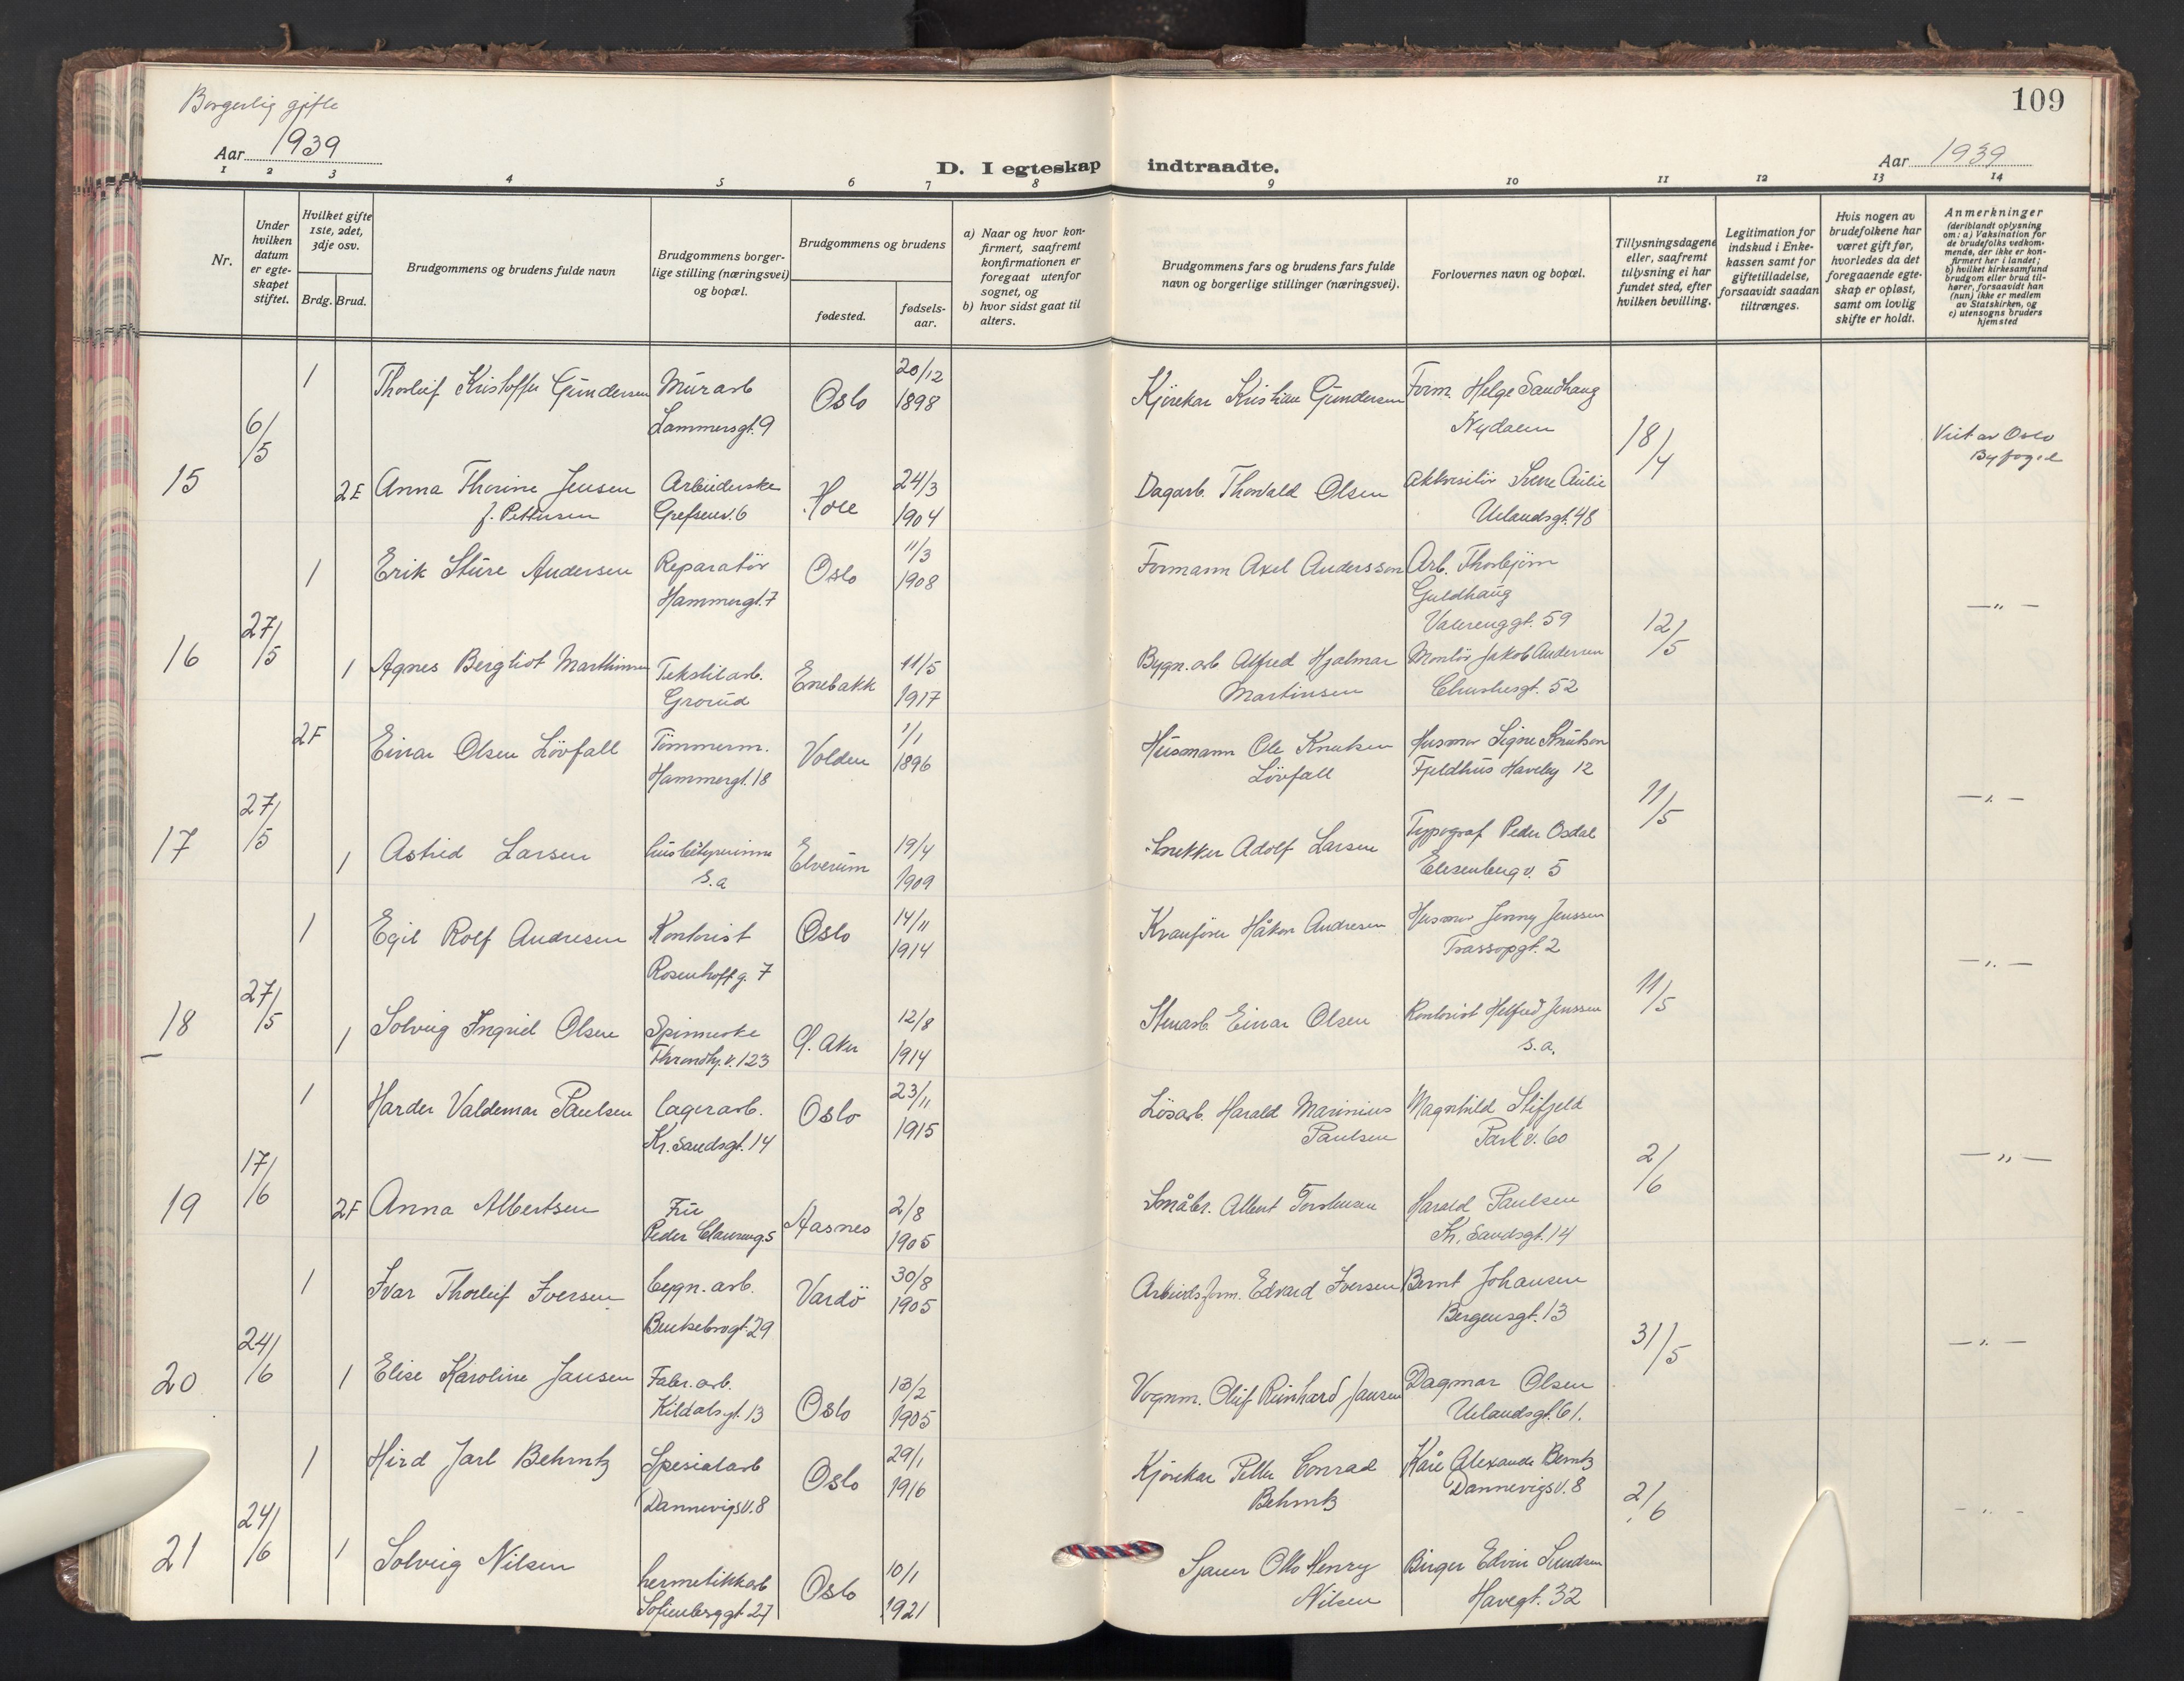 Borgerlig gifte
109
Aar 1939
D. I egteskap indtraadte.
Aar 1939
1 2 3 4 5 6 7 8 9 10 11 12 13 14
Nr.
Under
hvilken
datum
er egte-
skapet
stiftet.
Hvilket gifte
1ste, 2det,
3dje osv.
Brdg. Brud.
Brudgommens og brudens fulde navn
Brudgommens borger-
lige stilling (næringsvei)
og bopæl.
Brudgommens og brudens
fødested.
fødsels-
aar.
a) Naar og hvor kon-
firmert, saafremt
konfirmationen er
foregaat utenfor
sognet, og
b) hvor sidst gaat til
alters.
Brudgommens fars og brudens fars fulde
navn og borgerlige stillinger (næringsvei).
Forlovernes navn og bopæl.
Tillysningsdagene
eller, saafremt
tillysning ei har
fundet sted, efter
hvilken bevilling.
Legitimation for
indskud i Enke-
kassen samt for
giftetilladelse,
forsaavidt saadan
tiltrænges.
Hvis nogen av
brudefolkene har
været gift før,
hvorledes da det
foregaaende egte-
skap er opløst,
samt om lovlig
skifte er holdt.
Anmerkninger
(deriblandt oplysning
om: a) Vaksination for
de brudefolks vedkom-
mende, der ikke er kon-
firmert her i landet;
b) hvilket kirkesamfund
brudgom eller brud til-
hører, forsaavidt han
(hun) ikke er medlem
av Statskirken, og
c) utensogns bruders
hjemsted
15
6/5
1 Thorleif Kristoffer Gundersen Murarb Oslo 20/12
Lammersgt. 9 1898
Kjørekar Kristian Gundersen Form. Helge Sandhaug
Nydalen
18/4
Viet av Oslo
Byfoged
2E Anna Thorine Jensen Arbeiderske Hole 24/3
f. Pettersen Grefsenv. 6 1904
Dagarb. Thorvald Olsen Akkvisitör
Uelandsgt. 48
16
27/5
1 Erik Sture Andersen Reparatör Oslo 11/3
Hammergt. 7 1908
Formann Axel Andersson Arb. Thorbjörn
Guldhaug
Valerenggt. 59
12/5
— " —
1 Agnes Bergliot Marthinsen Tekstilarb. Enebakk 11/5
Grorud 1917
Bygn. arb Alfred Hjalmar Montör Jakob Andersen
Martinsen 52
17
27/5
2F Einar Olsen Lövfall Tömmerm. Volden 1/1
Hammergt. 18 1896
Husmann Ole Knutsen Husmor Signe Knutsen
Lövfall Fjeldhus Haveby 12
11/5
— " —
1 Astrid Larsen husbestyrerinne Elverum 19/4
s.a 1909
Snekker Adolf Larsen Typograf Peder Osdal
Elisenberg v. 5
18
27/5
1 Egil Rolf Andresen Kontorist Oslo 14/11
Rosenhoffg. 7 1914
Kranfører Håkon Andresen Husmor Jenny Jenssen
Trassopgt. 2
11/5
— " —
1 Solveig Ingrid Olsen Spinnerske Ø. Aker 12/8
Throndhj. v. 123 1914
Stenarb. Einar Olsen Kontorist Helfred Jenssen
s.a.
19
17/6
1 Harder Valdemar Paulsen lagerarb. Oslo 23/11
Kr. Sandsgt. 14 1915
Lösarb. Harald Marinius Magnhild Stifjeld
Paulsen Parkv. 60
2/6
— " —
2F Anna Albertsen Fru Aasnes 2/8
Peder Clausensg. 5 1905
Småbr. Albert Harald Paulsen
Kr. Sandsgt. 14
20
24/6
1 Ivar Thorleif Iversen bygn. arb. Vardö 30/8
Bentsebrogt. 29 1905
Arbeidsform. Edvard Iversen Bernt Johansen
Bergensgt. 13
31/5
— " —
1 Elise Karoline Jansen Fabr. arb. Oslo 13/2
Kildalsgt. 13 1905
Vognm. Oluf Reinhard Jansen Dagmar Olsen
Uelandsgt. 61.
21
24/6
1 Hird Jarl Behmtz Spesialarb Oslo 29/1
Dannevigsv. 8 1916
Kjørekar Petter Conrad Kåre Alexander Berntz
Behmtz Dannevigsv. 8
2/6
— " —
1 Solveig Nilsen hermetikkarb Oslo 10/1
Sofienberggt 27 1921
Sjauer Otto Henry Birger Edvin
Nilsen Havegt. 32